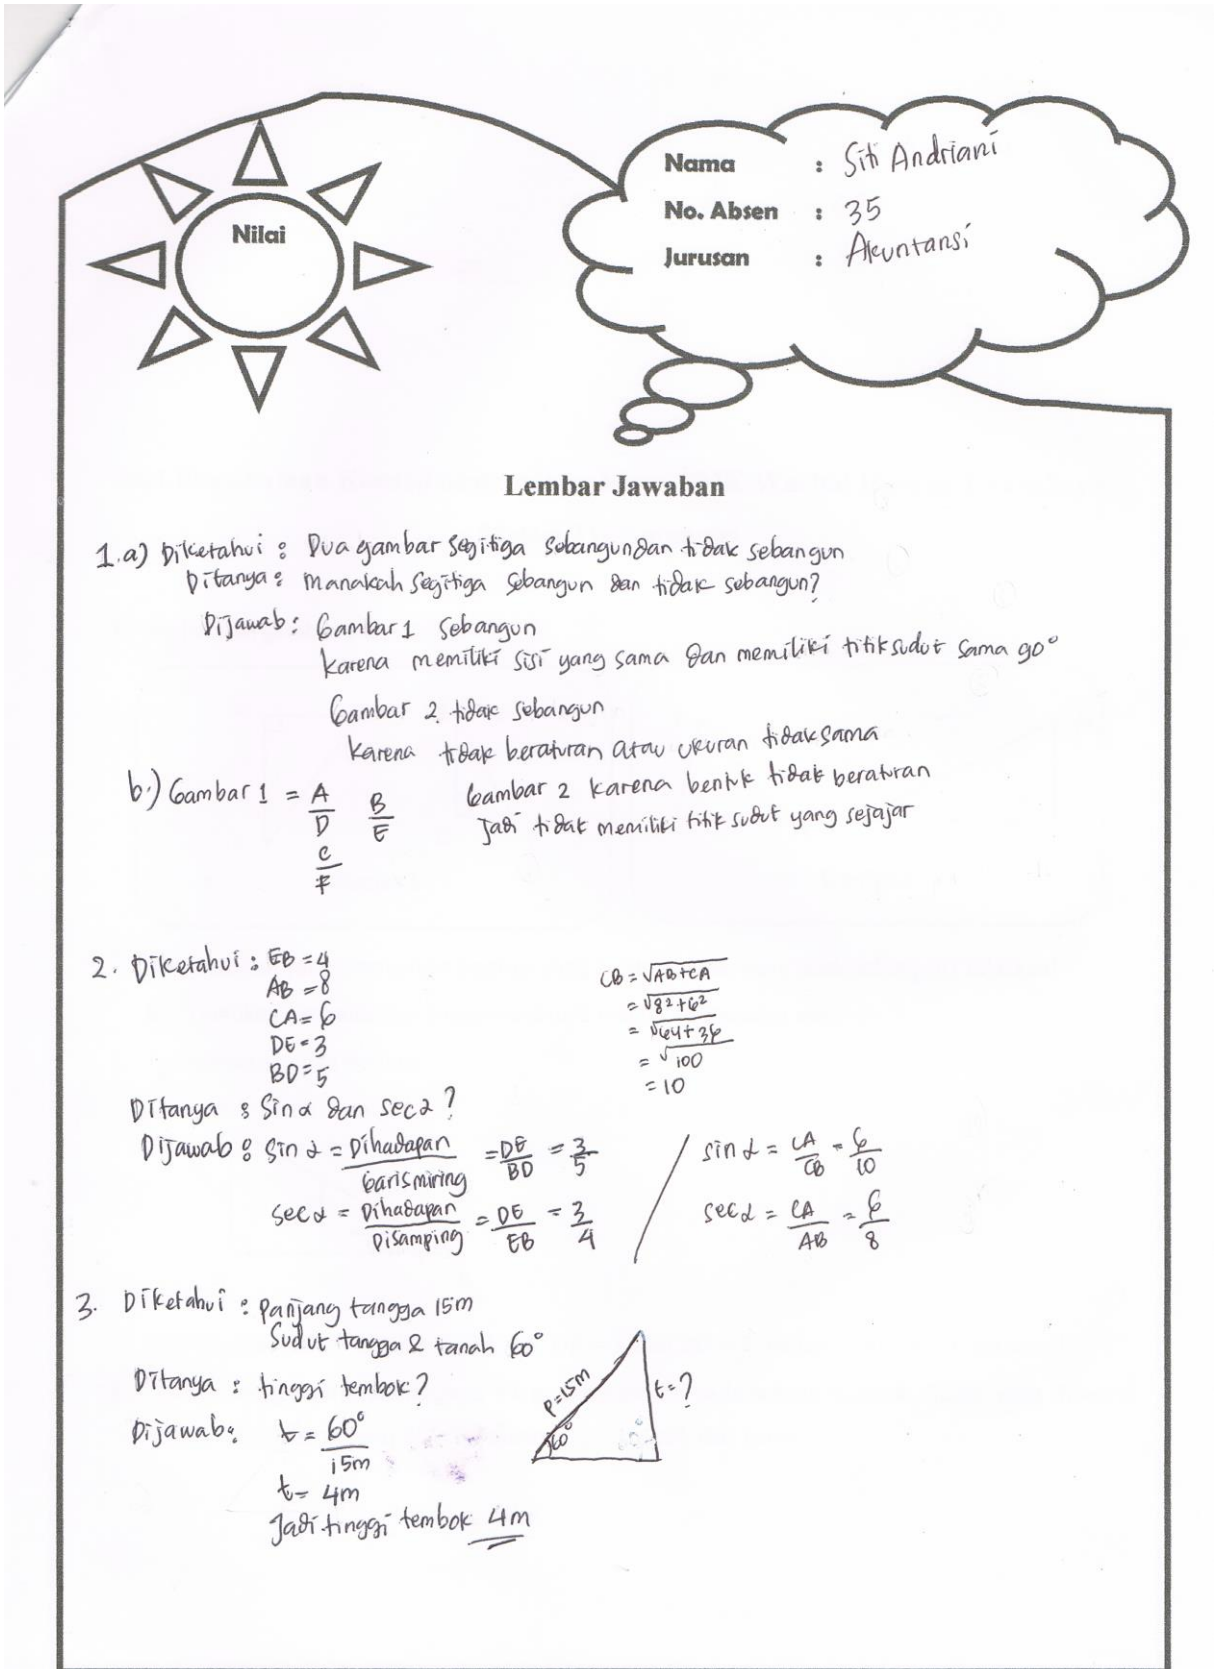 Nilai
Nama : Siti Andriani
No. Absen : 35
Jurusan : Akuntansi
Lembar Jawaban
1.a) Diketahui : Dua gambar segitiga sebangun dan tidak sebangun
Ditanya : Manakah segitiga sebangun dan tidak sebangun?
Dijawab : Gambar 1 sebangun
karena memiliki sisi yang sama dan memiliki titik sudut sama 90°
Gambar 2 tidak sebangun
karena tidak beraturan atau ukuran tidak sama
b.) Gambar 1 = A/D B/E
C/F
Gambar 2 karena bentuk tidak beraturan
Jadi tidak memiliki titik sudut yang sejajar
2. Diketahui : EB = 4
AB = 8
CA = 6
DE = 3
BD = 5
CB = √AB+CA
= √8²+6²
= √64+36
= √100
= 10
Ditanya : Sin α dan sec α ?
Dijawab : Sin α = Dihadapan/Garis miring = DE/BD = 3/5
sec α = Dihadapan/Disamping = DE/EB = 3/4
sin α = CA/CB = 6/10
sec α = CA/AB = 6/8
3. Diketahui : panjang tangga 15m
Sudut tangga & tanah 60°
Ditanya : tinggi tembok ?
Dijawab : t = 60°/15m
t = 4m
Jadi tinggi tembok 4m
P=15m
t=?
60°